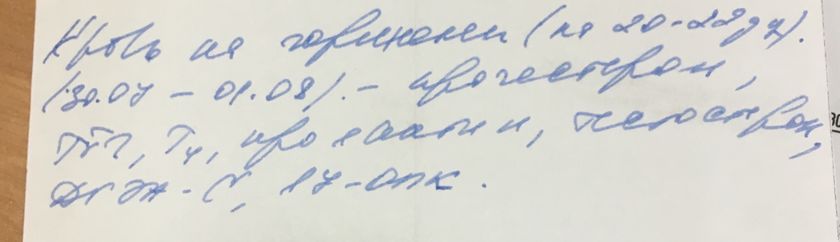 Кровь на гормоны (на 20-22 д ц).
(30.07 – 01.08). – прогестерон,
ТТГ, Т4, пролактин, тестостерон,
ДГЭА-С, 17-ОПК.